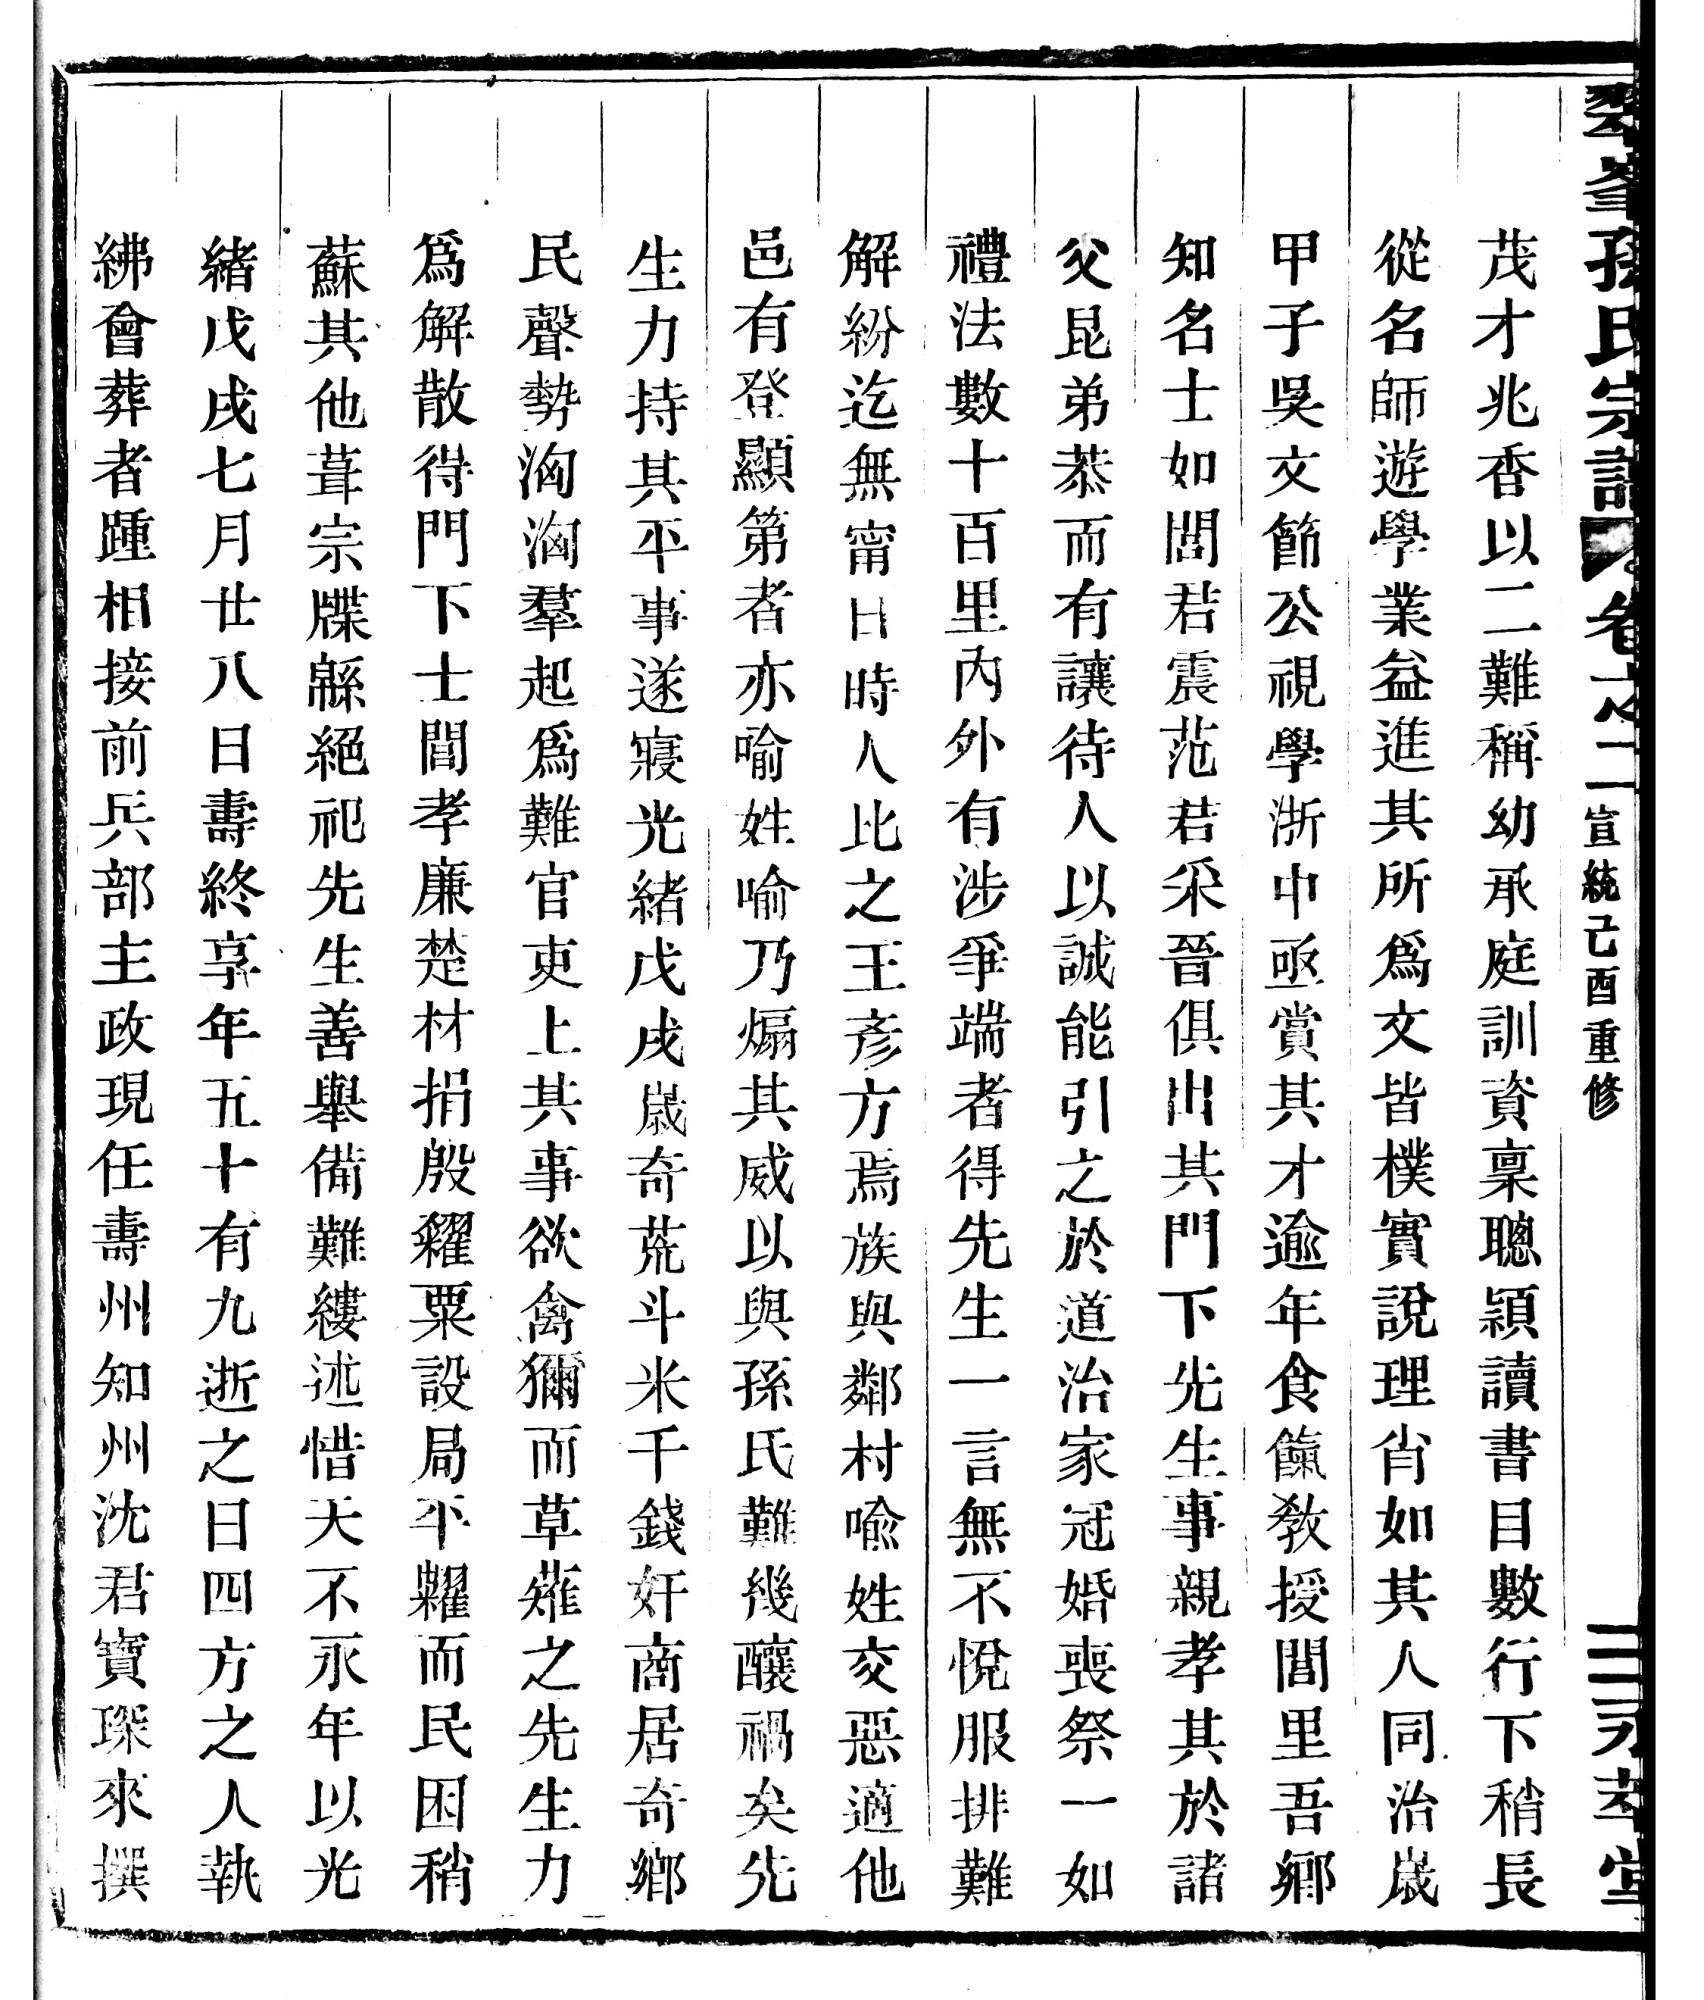 翠峯孫氏宗譜 卷之二 宣統己酉重修 二 永孝堂
茂才兆香以二難稱幼承庭訓資稟聰穎讀書目數行下稍長
從名師遊學業益進其所爲文皆樸實說理肖如其人同治歲
甲子吳文節公視學浙中亟賞其才逾年食餼敎授閭里吾鄉
知名士如閭君震范君采晉俱出其門下先生事親孝其於諸
父昆弟恭而有讓待人以誠能引之於道治家冠婚喪祭一如
禮法數十百里內外有涉爭端者得先生一言無不悅服排難
解紛迄無甯日時人比之王彥方焉族與鄰村喻姓交惡適他
邑有登顯第者亦喻姓喻乃煽其威以與孫氏難幾釀禍矣先
生力持其平事遂寢光緒戊戌歲奇荒斗米千錢奸商居奇鄉
民聲勢洶洶羣起爲難官吏上其事欲禽獮而草薙之先生力
爲解散得門下士閭孝廉楚材捐殷糴粟設局平糶而民困稍
蘇其他葺宗牒緜絕祀先生善舉備難縷述惜天不永年以光
緒戊戌七月廿八日壽終享年五十有九逝之日四方之人執
紼會葬者踵相接前兵部主政現任壽州知州沈君寶琛來撰